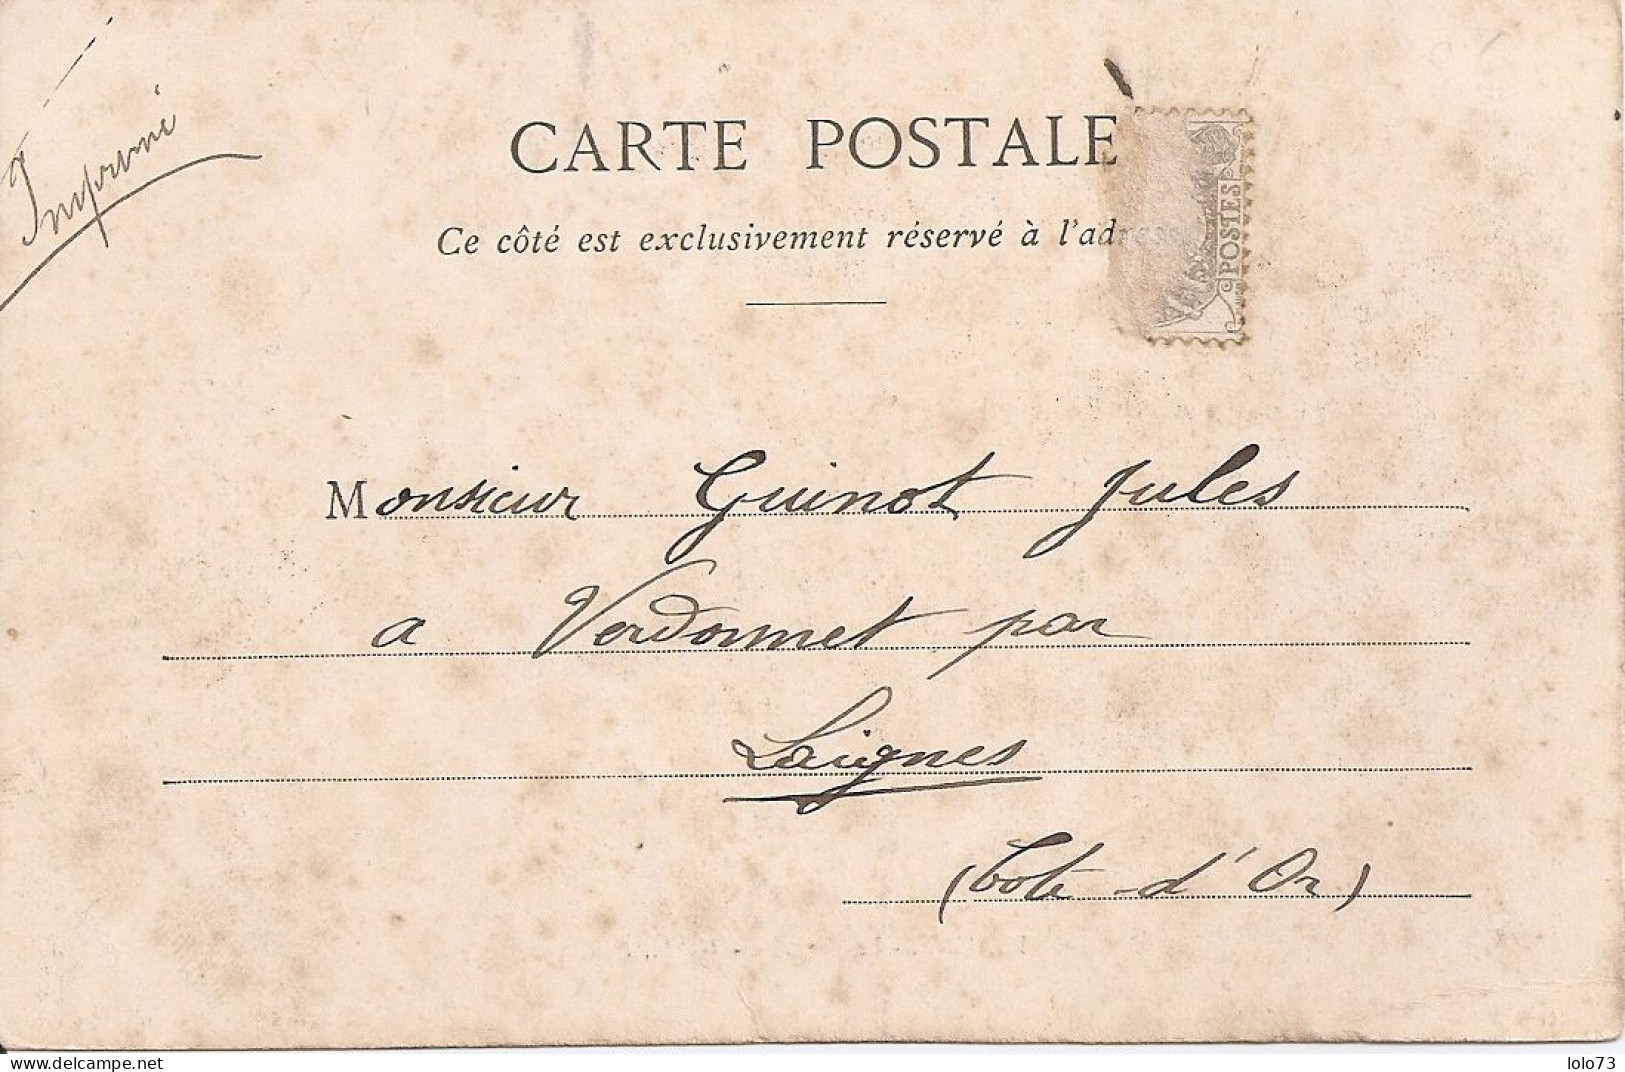 Imprimé
CARTE POSTALE
Ce côté est exclusivement réservé à l'adresse
POSTES
Monsieur Guinot Jules
a Verdonnet par
Laignes
(Cote-d'Or)
https://www.delcampe.net
lolo73